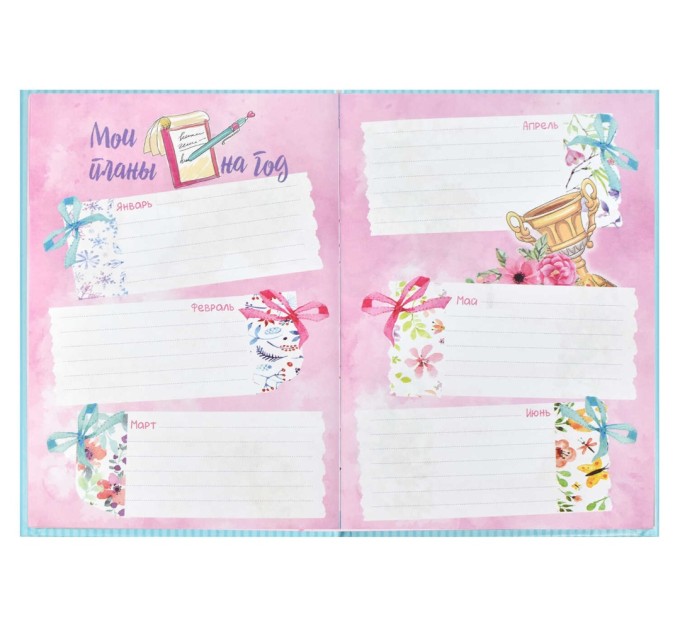 Мои
планы
на год
Январь
Февраль
Март
Апрель
Май
Июнь